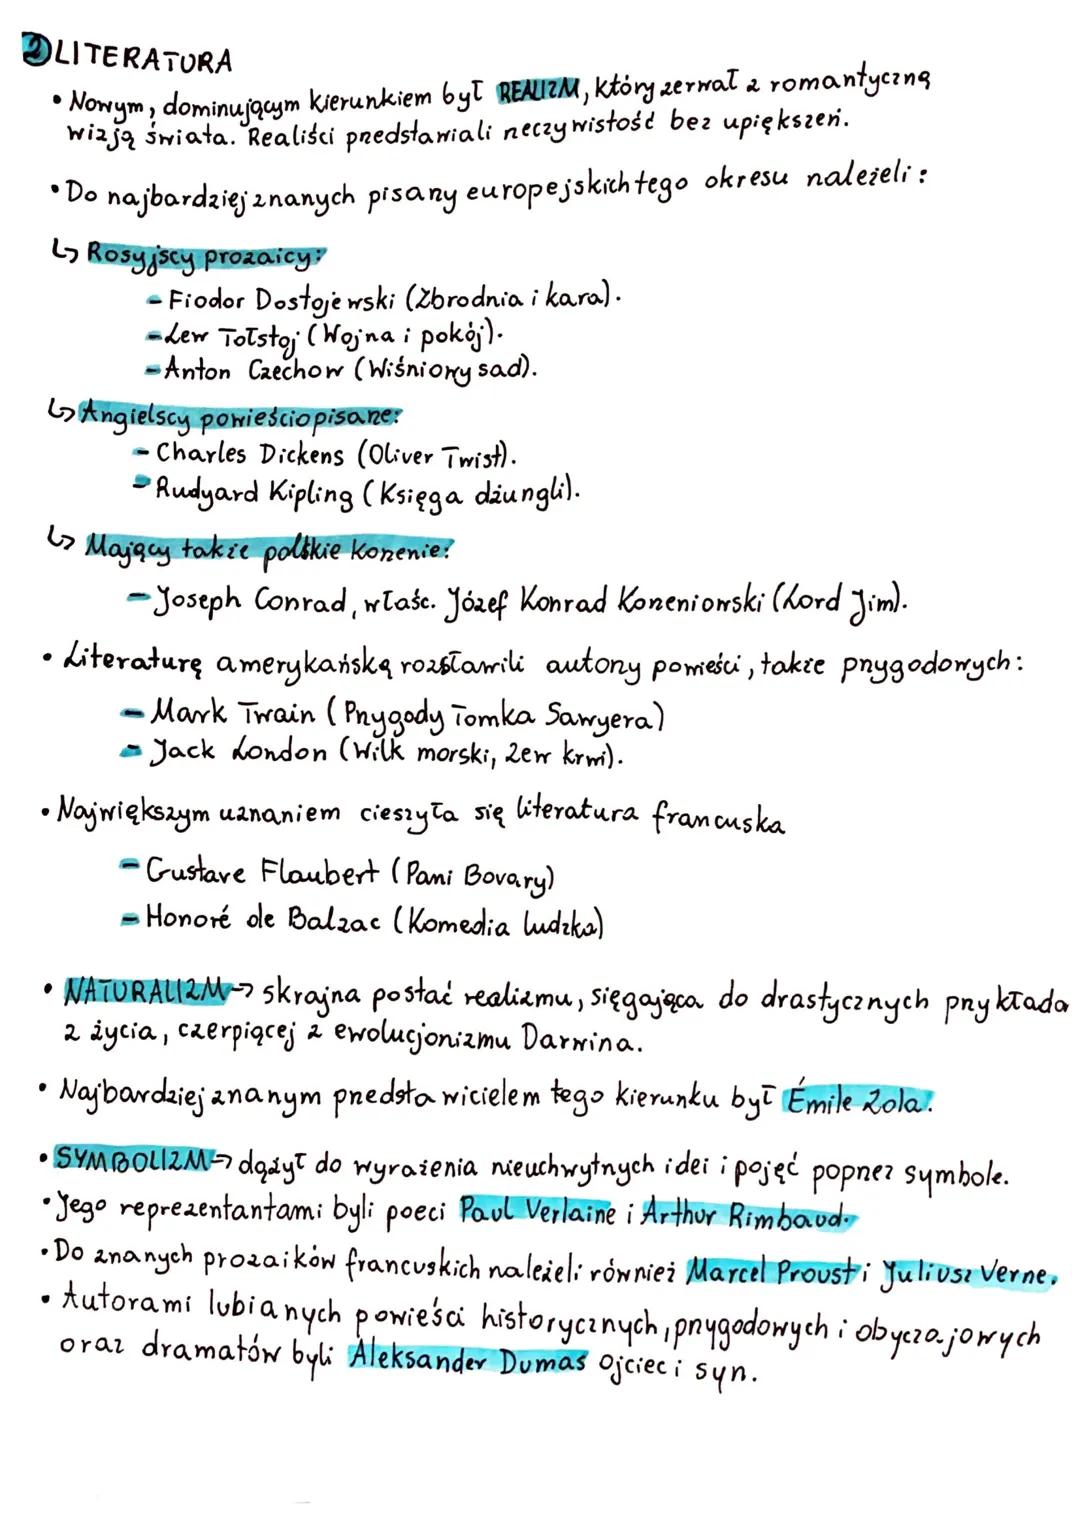 2 LITERATURA
• Nowym, dominującym kierunkiem był REALIZM, który zerwał z romantyczną
wizją świata. Realiści przedstawiali rzeczywistość bez upiększeń.
• Do najbardziej znanych pisarzy europejskich tego okresu należeli:
↳ Rosyjscy prozaicy:
- Fiodor Dostojewski (Zbrodnia i kara).
- Lew Tołstoj (Wojna i pokój).
- Anton Czechow (Wiśniowy sad).
↳ Angielscy powieściopisarze:
- Charles Dickens (Oliver Twist).
- Rudyard Kipling (Księga dżungli).
↳ Mający także polskie korzenie:
- Joseph Conrad, właśc. Józef Konrad Korzeniowski (Lord Jim).
• Literaturę amerykańską rozsławili autorzy powieści, także przygodowych:
- Mark Twain (Przygody Tomka Sawyera)
- Jack London (Wilk morski, Zew krwi).
• Największym uznaniem cieszyła się literatura francuska
- Gustave Flaubert (Pani Bovary)
- Honoré de Balzac (Komedia ludzka)
• NATURALIZM → skrajna postać realizmu, sięgająca do drastycznych przykłada
z życia, czerpiącej z ewolucjonizmu Darwina.
• Najbardziej znanym przedstawicielem tego kierunku był Émile Zola.
• SYMBOLIZM → dążył do wyrażenia nieuchwytnych idei i pojęć poprzez symbole.
• Jego reprezentantami byli poeci Paul Verlaine i Arthur Rimbaud.
• Do znanych prozaików francuskich należeli również Marcel Proust i Juliusz Verne.
• Autorami lubianych powieści historycznych, przygodowych i obyczajowych
oraz dramatów byli Aleksander Dumas ojciec i syn.